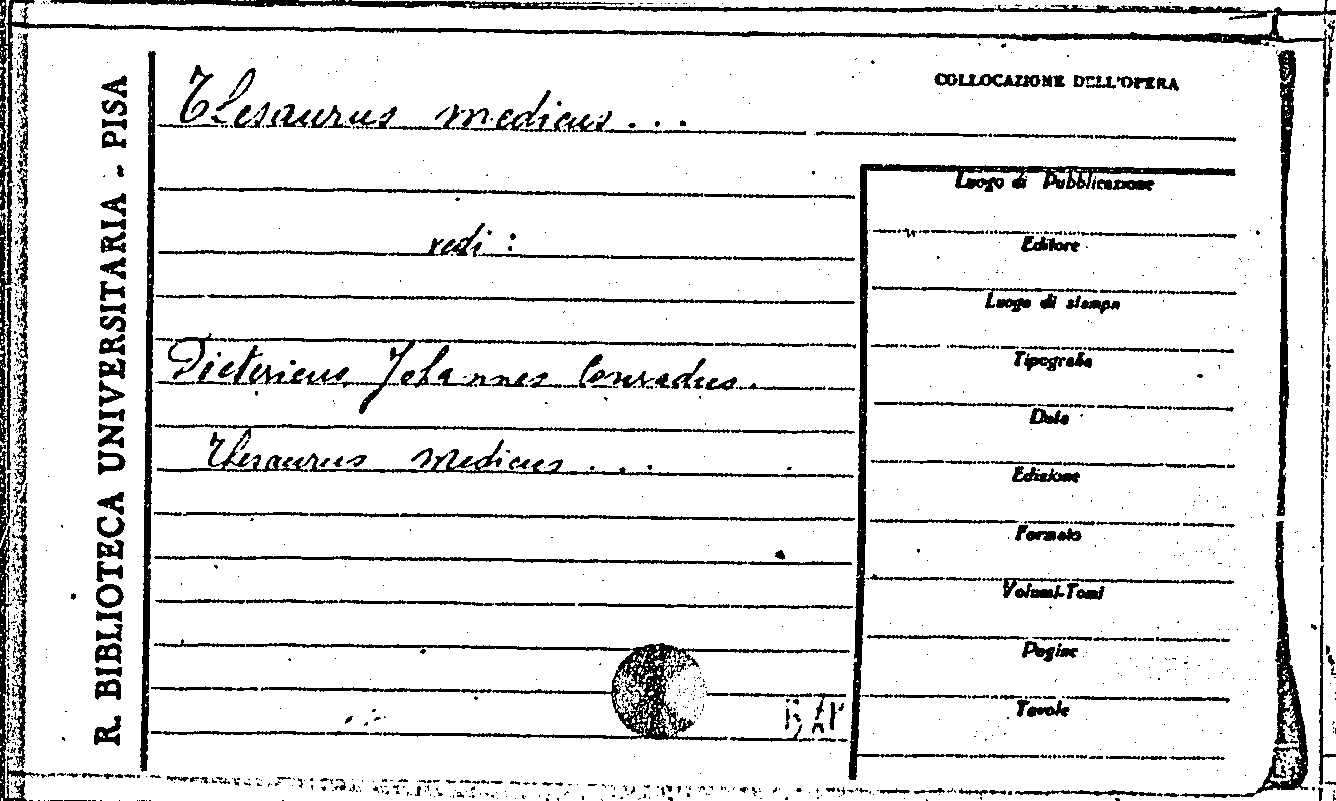 R. BIBLIOTECA UNIVERSITARIA - PISA
COLLOCAZIONE DELL'OPERA
Thesaurus medicus...
vedi:
Dietericus, Johannes Conradus.
Thesaurus medicus....
Luogo di Pubblicazione
Editore
Luogo di stampa
Tipografia
Data
Edizione
Formato
Volumi-Tomi
Pagine
Tavole